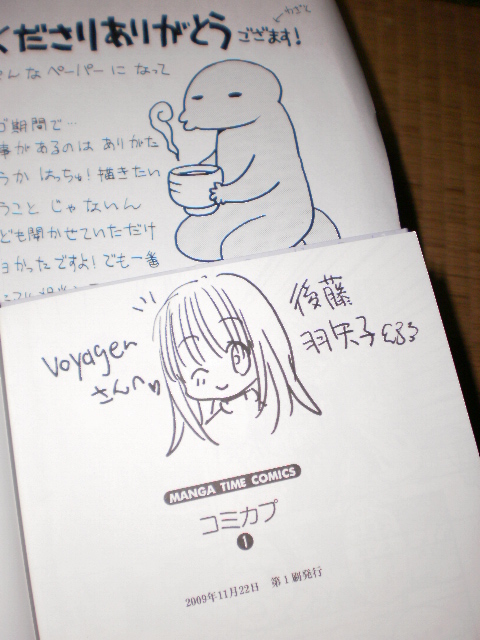 くださりありがとうございます!
んなペーパーになって
期間で…
事があるのは ありがた
うか はっちゅ!描きたい
うこと じゃないん
ども聞かせていただけ
ョかったですよ!でも一番
後藤
羽矢子
voyager
さんへ♥
MANGA TIME COMICS
コミカプ
1
2009年11月22日 第1刷発行